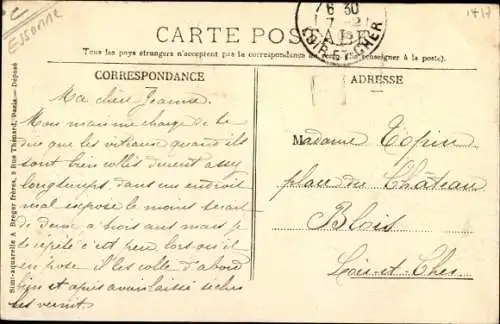 Essonne
1417
6 30
7 - 2
LOIR-ET-CHER
CARTE POSTALE
Tous les pays étrangers n'acceptent pas la correspondance au
(se renseigner à la poste).
CORRESPONDANCE
ADRESSE
Simi-aquarelle A. Breger frères, 9 Rue Thénard, Paris — Déposé
Ma chère Jeanne.
Mon mari me charge de te
dire que les vitraux quand ils
sont bien collés durent assez
longtemps. dans un endroit
mal exposé le moins serait
de deux à trois ans mais je
le répète c'est peu, lors on il
en pose il les colle d'abord
bien et après avoir laissé sécher
les vernit
Madame Topin
place du Château
Blois
Loir-et-Cher